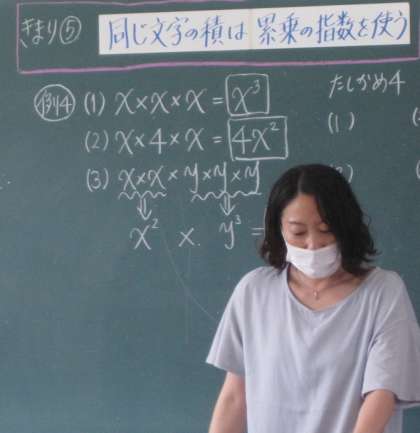 きまり⑤ 同じ文字の積は 累乗の指数を使う
例4 (1) x×x×x = x³
(2) x×4×x = 4x²
(3) x×x×y×y×y
x² × y³ =
たしかめ4
(1)